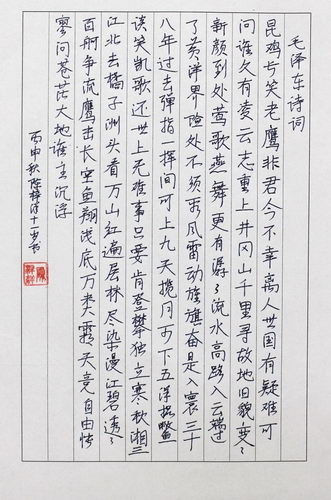 毛泽东诗词
昆鸡长笑老鹰非君今不幸离人世国有疑难可
问谁久有凌云志重上井冈山千里寻故地旧貌变
新颜到处莺歌燕舞更有潺〻流水高路入云端过
了黄洋界险处不须看风雷动旌旗奋是人寰三十
八年过去弹指一挥间可上九天揽月可下五洋捉鳖
谈笑凯歌还世上无难事只要肯登攀独立寒秋湘
江北去橘子洲头看万山红遍层林尽染漫江碧透
百舸争流鹰击长空鱼翔浅底万类霜天竞自由怅
寥问苍茫大地谁主沉浮
丙申秋陈梓十一岁书